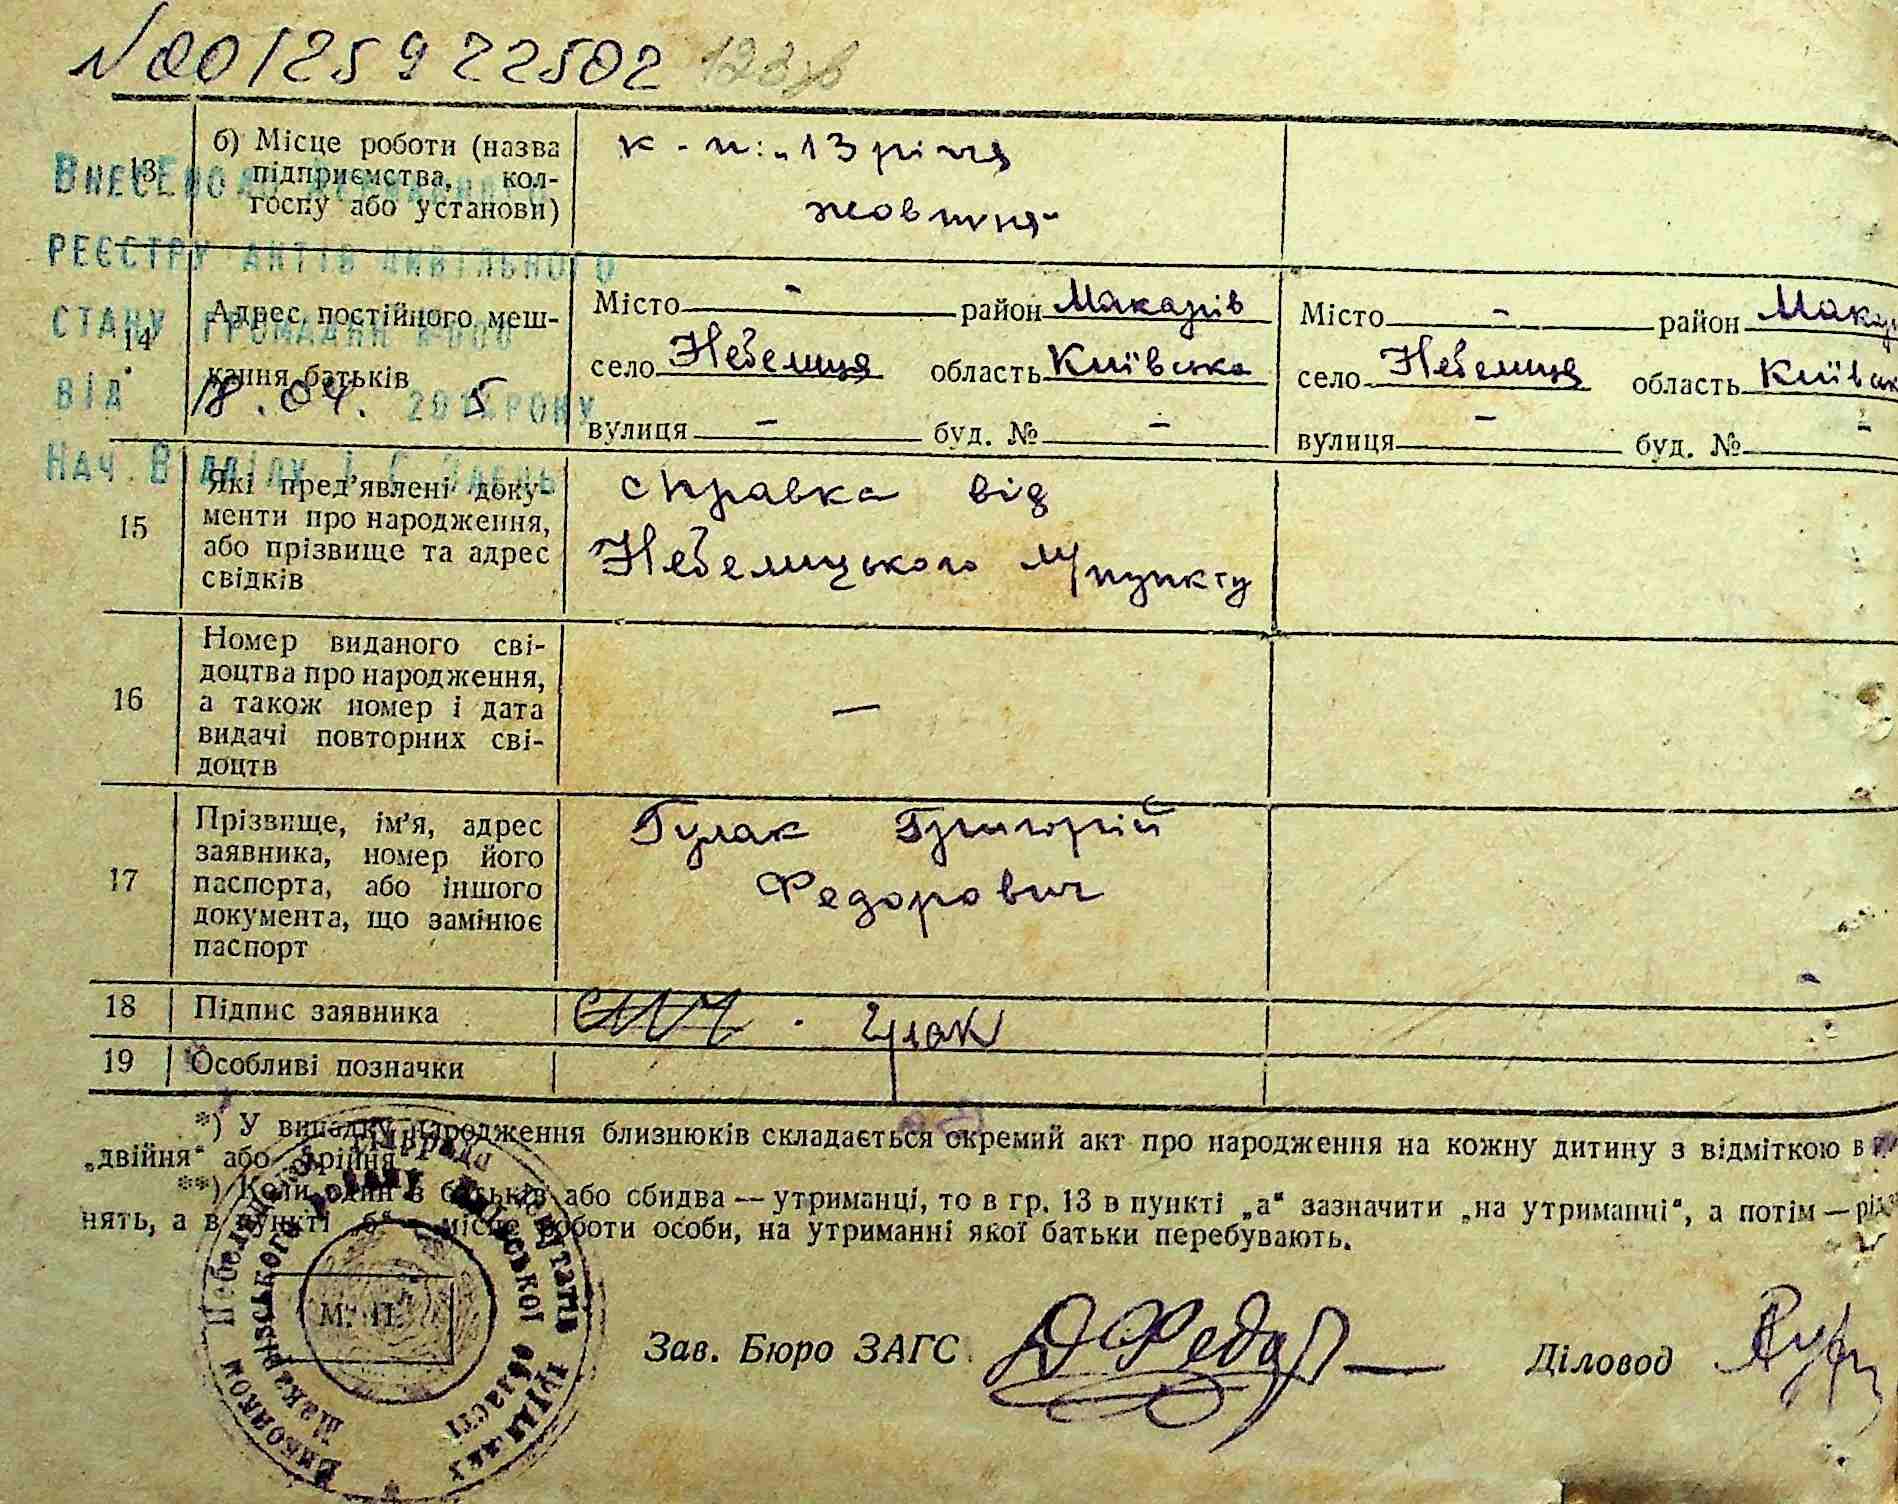 № 00125922502
13 б) Місце роботи (назва підприємства, кол-
госпу або установи)
к-п: „13 річчя
жовтня"
Внесено до Державного
реєстру актів цивільного
стану громадян № 000
від 18.04. 2015 року
Нач. Відділу
14 Адрес постійного меш-
кання батьків
Місто - район Макарів
село Небелиця область Київська
вулиця - буд. № -
Місто - район Макар
село Небелиця область Київськ
вулиця - буд. № -
15 Які пред'явлені доку-
менти про народження,
або прізвище та адрес
свідків
справка від
Небелицького м/пункту
16 Номер виданого сві-
доцтва про народження,
а також номер і дата
видачі повторних сві-
доцтв
—
17 Прізвище, ім'я, адрес
заявника, номер його
паспорта, або іншого
документа, що замінює
паспорт
Гулак Григорій
Федорович
18 Підпис заявника
Гулак
19 Особливі позначки
*) У випадку народження близнюків складається окремий акт про народження на кожну дитину з відміткою в
„двійня" або „трійня"
**) Коли один з батьків або обидва — утриманці, то в гр. 13 в пункті „а" зазначити „на утриманні", а потім —
нять, а в пункті „б" — місце роботи особи, на утриманні якої батьки перебувають.
М. П.
Виконком Небелицької сільради депутатів трудящих
Макарівського району Київської області
Зав. Бюро ЗАГС
Діловод